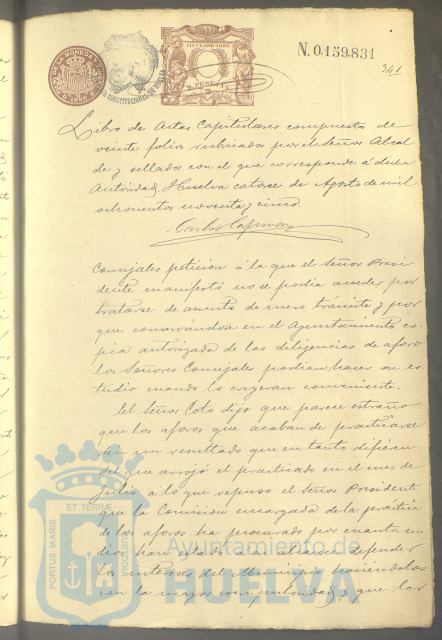 11ª CLASE-1895
2 PESETAS
N. 0.159.831
341
Libro de Actas Capitulares compuesto de
veinte folios rubricados por el Señor Alcal
de y sellados con el que corresponde a dicha
Autoridad. Huelva catorse de Agosto de mil
ochocientos noventa y cinco.
Concejales petición á la que el Señor Presi
dente manifestó no se podia acceder por
tratarse de asunto de mero trámite y por
que conservandose en el Ayuntamiento co-
pia autorizada de las diligencias de aforo
los Señores Concejales podian hacer su es-
tudio cuando lo creyeran conveniente.
El Señor Coto dijo que parece extraño
que los aforos que acaban de practicarse
den un resultado que en tanto difieren
del que arrojó el practicado en el mes de
Julio á lo que repuso el Señor Presidente
que la Comision encargada de la práctica
de los aforos ha procurado por cuantos me
dios han estado á su alcance defender
los intereses del Municipio haciendolos
con la mayor escrupulosidad y que las
PORTUS MARIS
ET TERRÆ
CUSTODIA
Ayuntamiento de
HUELVA